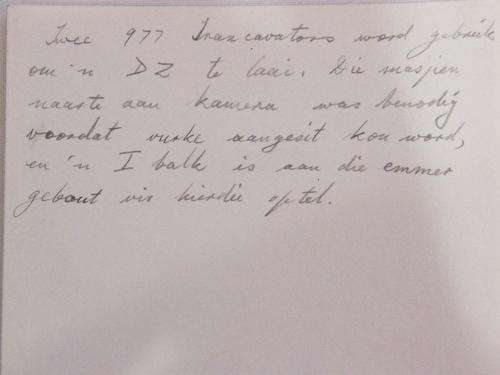 Twee 977 Traxcavators word gebruik
om 'n DZ te laai. Die masjien
naaste aan kamera was benodig
voordat vurke aangesit kon word,
en 'n I balk is aan die emmer
gebout vir hierdie optel.